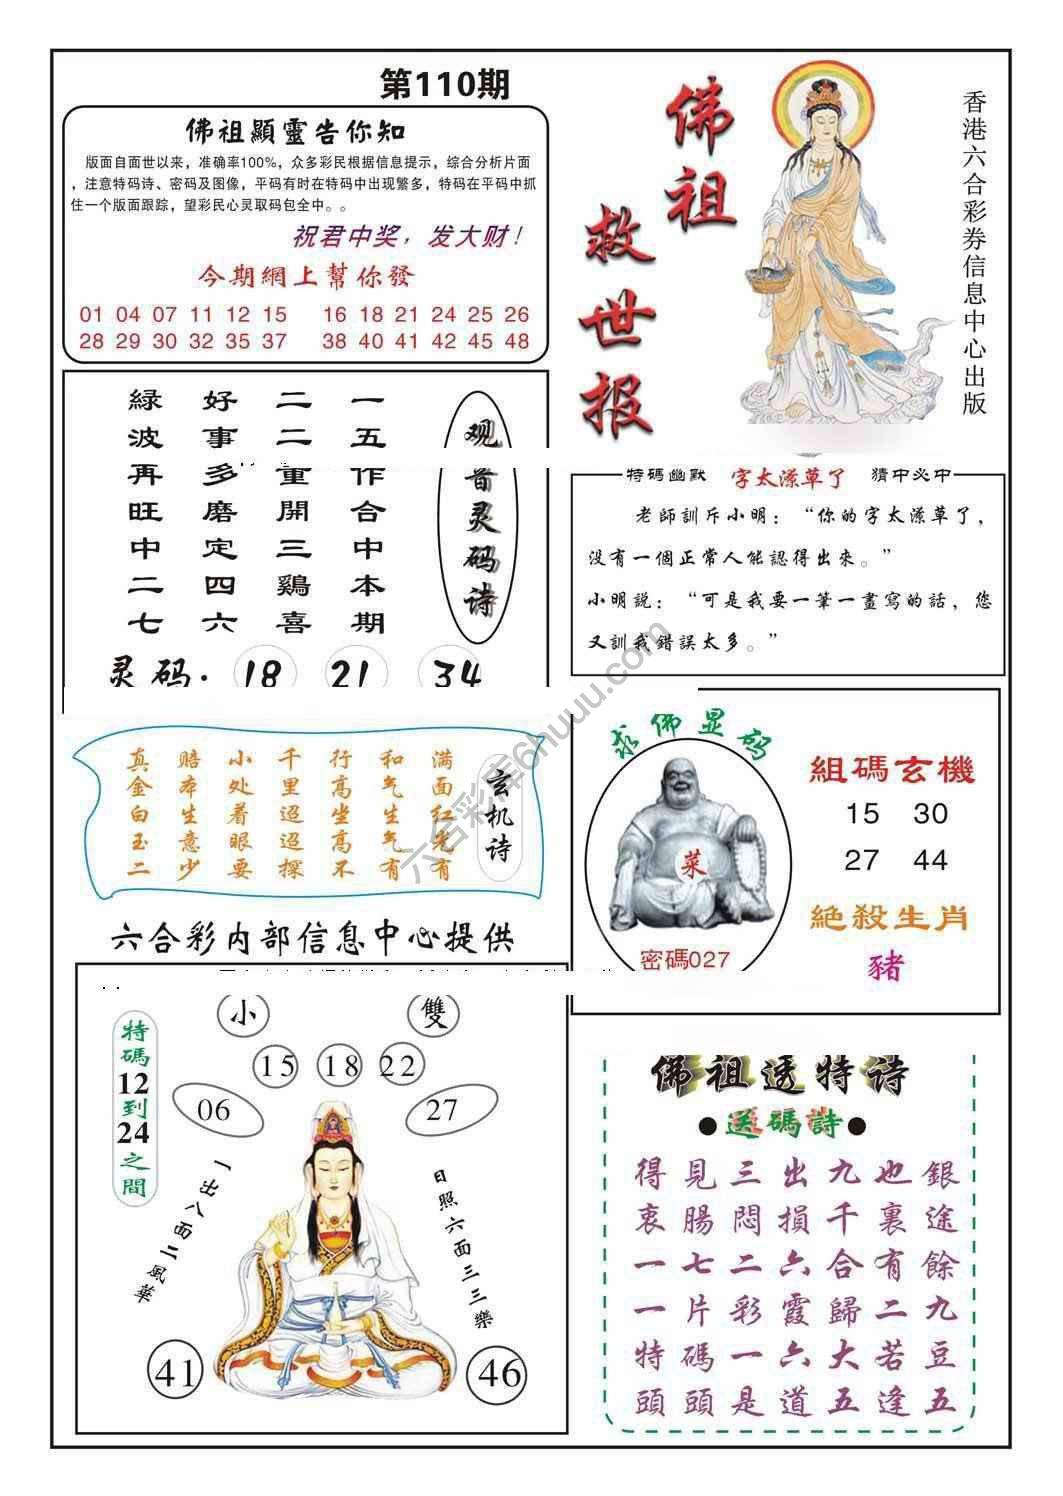 第110期
佛祖顯靈告你知
版面自面世以来，准确率100%，众多彩民根据信息提示，综合分析片面
，注意特码诗、密码及图像，平码有时在特码中出现繁多，特码在平码中抓
住一个版面跟踪，望彩民心灵取码包全中。。
祝君中奖，发大财！
今期網上幫你發
01 04 07 11 12 15 16 18 21 24 25 26
28 29 30 32 35 37 38 40 41 42 45 48
佛祖
救世报
香港六合彩券信息中心出版
观音灵码诗
一五作合中本期
二二重開三鷄喜
好事多磨定四六
緑波再旺中二七
灵码. 18 21 34
特碼幽默 字太潦草了 猜中必中
老師訓斥小明：“你的字太潦草了，
没有一個正常人能認得出來。”
小明説：“可是我要一筆一畫寫的話，您
又訓我錯誤太多。”
玄机诗
满面红光有
和气生气有
行高坐高不
千里迢迢探
小处着眼要
赔本生意少
真金白玉二
六合彩内部信息中心提供
求佛显码
菜
密碼027
組碼玄機
15 30
27 44
絶殺生肖
豬
特碼12到24之間
小 雙
15 18 22
06 27
一出八面二風華
日照六面三三樂
41 46
佛祖透特诗
●送碼詩●
得見三出九也銀
衷腸悶損千裏途
一七二六合有餘
一片彩霞歸二九
特碼一六大若豆
頭頭是道五逢五
六合彩库6huuu.com